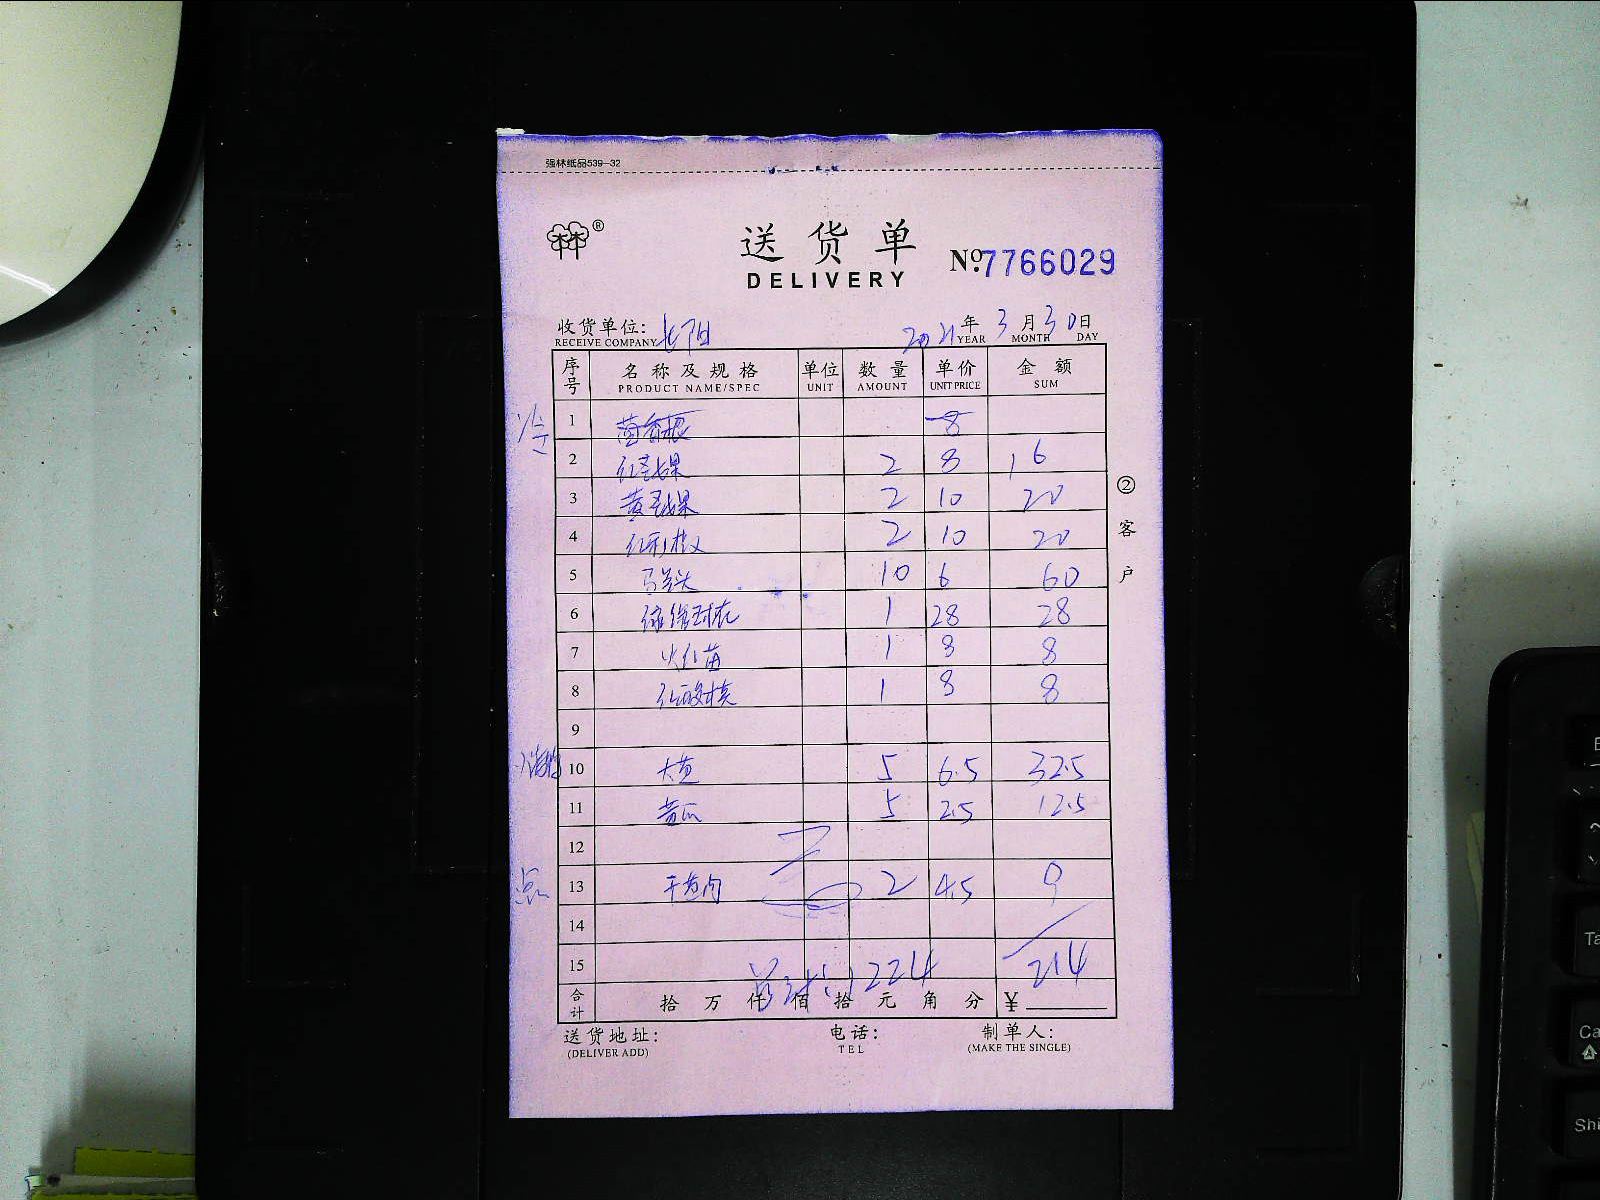 强林纸品539-32
林林®
送货单
DELIVERY
№.7766029
收货单位: 2021年3月30日
RECEIVE COMPANY YEAR MONTH DAY
序号 名称及规格 单位 数量 单价 金额
PRODUCT NAME/SPEC UNIT AMOUNT UNIT PRICE SUM
冷 1 茴香根 8
2 红圣女果 2 8 16
3 黄圣女果 2 10 20
4 2 10 20
5 马兰头 10 6 60
6 1 28 28
7 火红苗 1 8 8
8 红酸模 1 8 8
9
10 大葱 5 6.5 32.5
11 黄瓜 5 2.5 12.5
12
点 13 干葱肉 2 4.5 9
14
15 224 214
合计 拾 万 仟 佰 拾 元 角 分 ¥
②客户
送货地址: 电话: 制单人:
(DELIVER ADD) TEL (MAKE THE SINGLE)